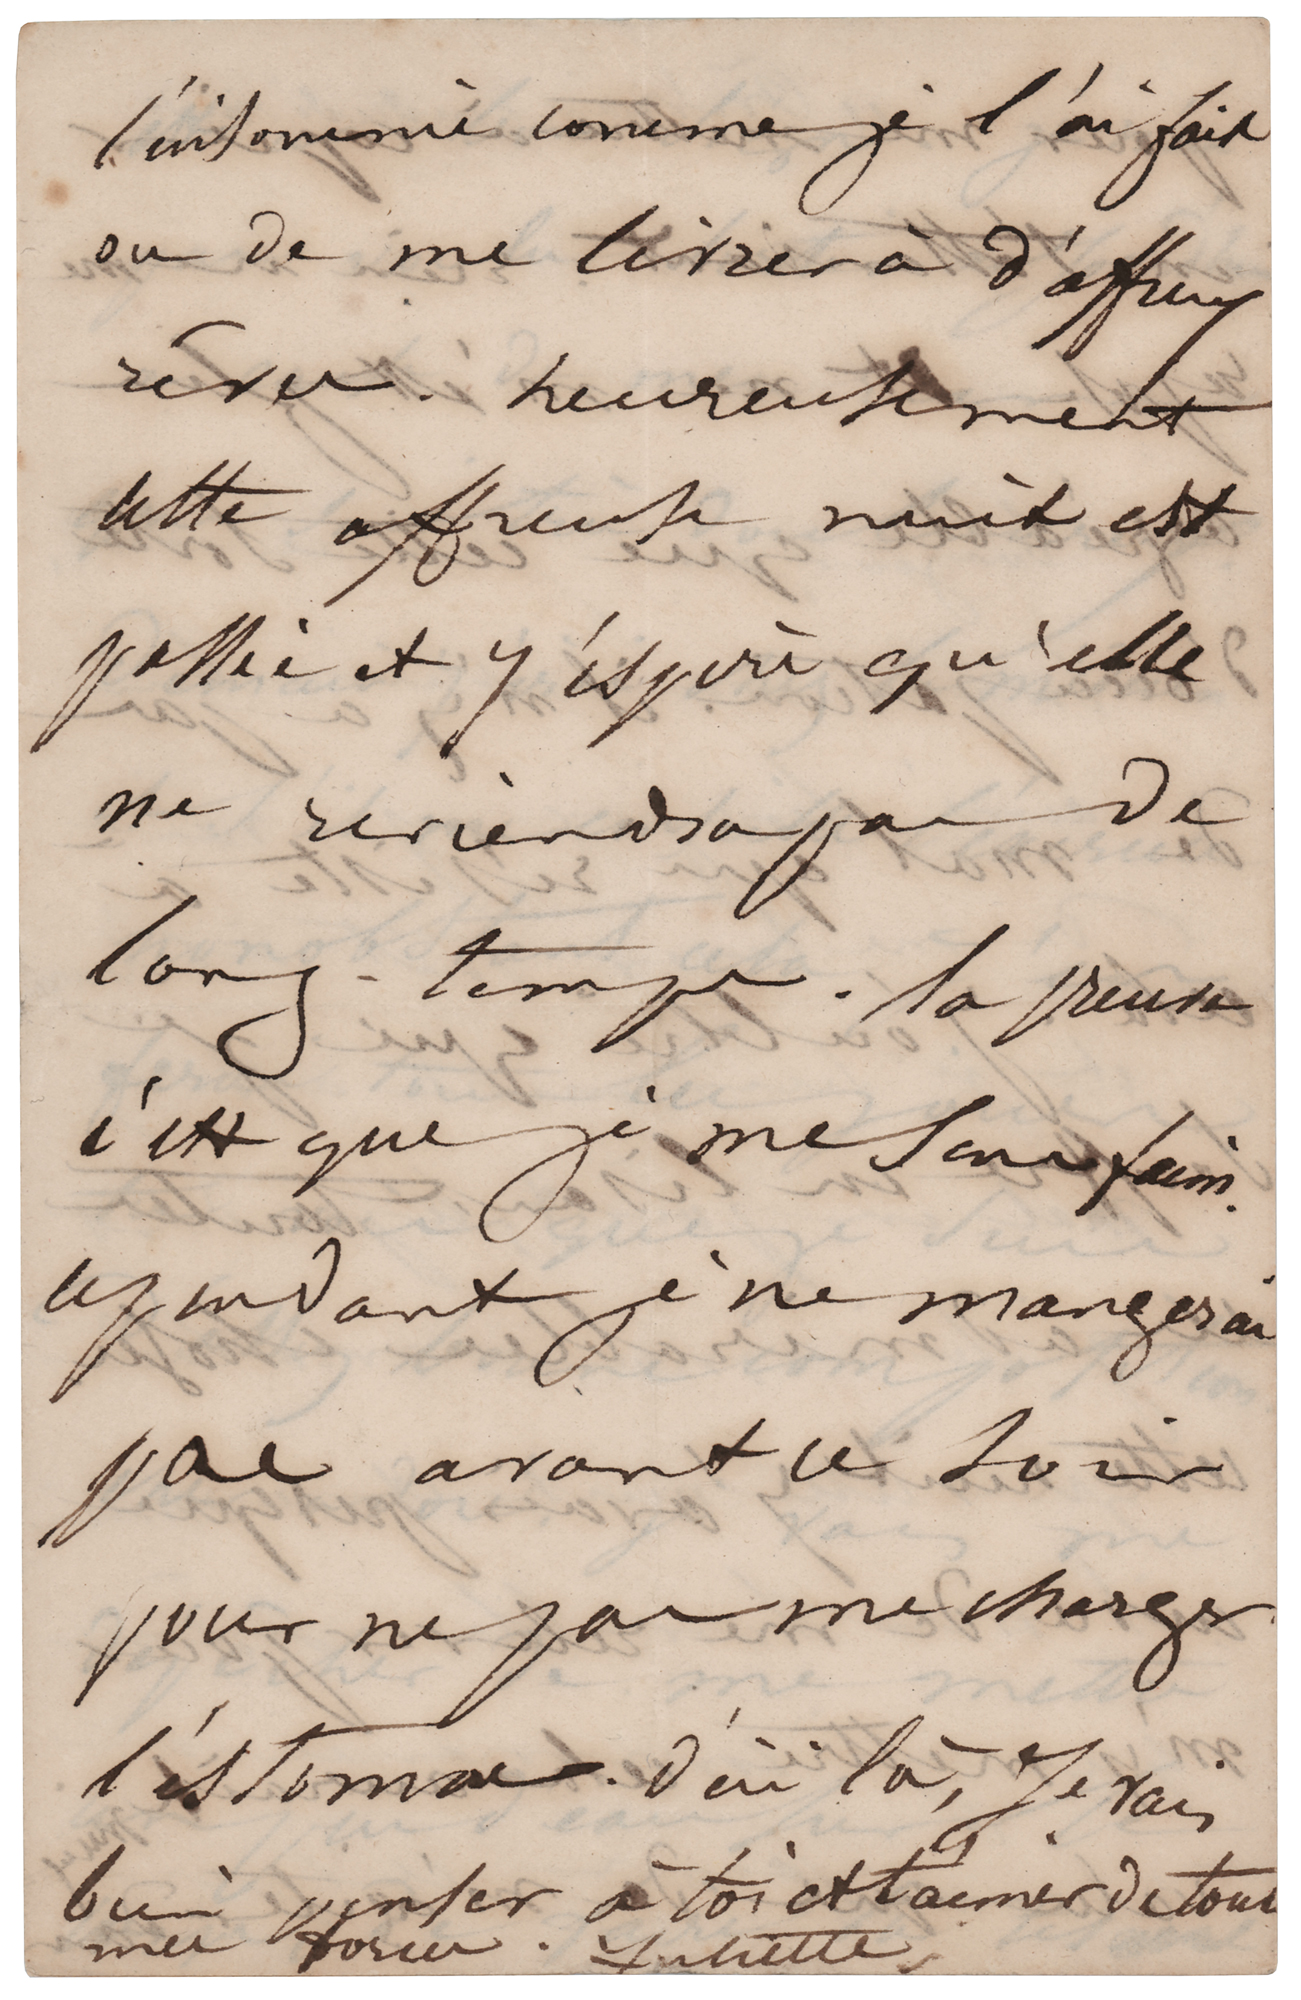 l'insomnie comme je l'ai fait
ou de me livrer à d'affreux
rêves. heureusement
cette affreuse nuit est
passée et j'espère qu'elle
ne reviendra pas de
long-temps. la preuve
c'est que je me sens faim.
cependant je ne mangerai
pas avant ce soir
pour ne pas me charger
l'estomac. d'ici là, Je vais
bien penser à toi et t'aimer de toutes
mes forces. Juliette